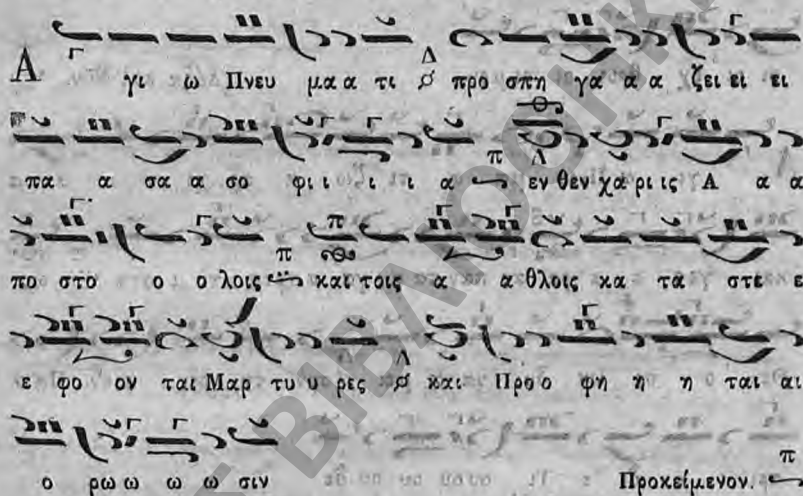 Α γι ω Πνευ μα α τι προ σπη γα α α ζει ει ει
πα α σα α σο φι ι ι ι α εν θεν χα ρι ις Α α α
πο στο ο ο λοις και τοις α α θλοις κα τα στε ε
ε φο ον ται Μαρ τυ υ ρες και Προ ο φη η η ται αι
ο ρω ω ω ω σιν Προκείμενον.